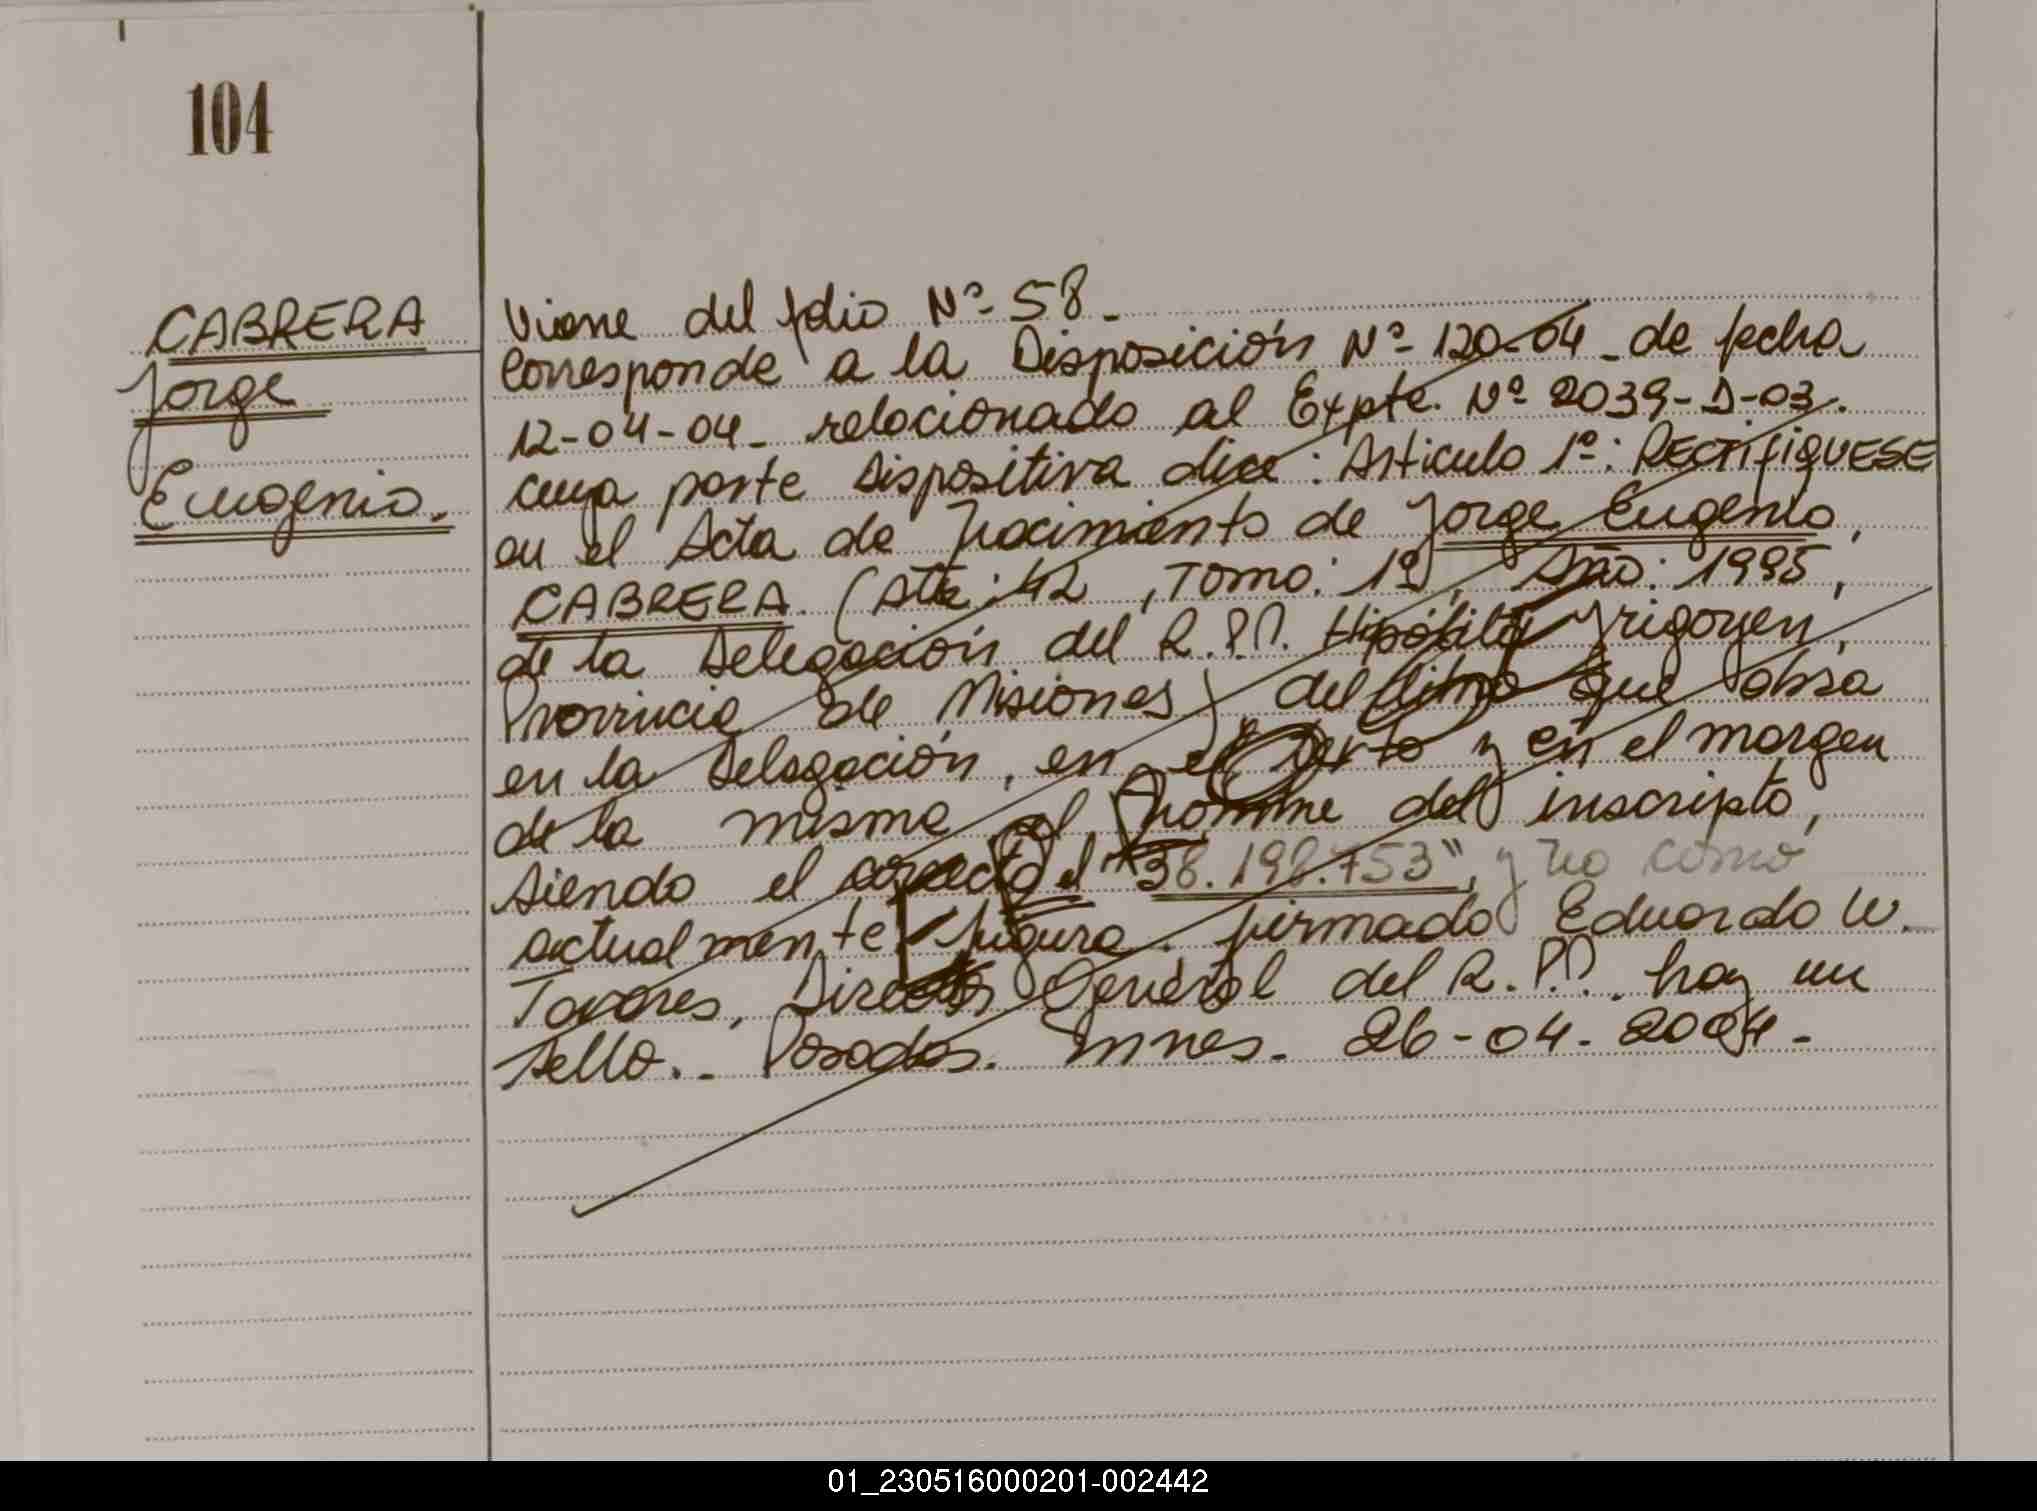 104
CABRERA
Jorge
Eugenio.
Viene del folio Nº 58_
Corresponde a la Disposición Nº 120-04_ de fecha
12-04-04_ relacionado al Expte. Nº 2039-D-03.
cuya parte Dispositiva dice: Articulo 1º: RECTIFIQUESE
en el Acta de Nacimiento de Jorge Eugenio,
CABRERA. (Acta: 42, Tomo: 1º, Año: 1995,
de la Delegación del R.P.P. Hipólito Yrigoyen,
Provincia de Misiones) del libro que obra
en la Delegación, en el texto y en el margen
de la misma el nombre del inscripto,
siendo el correcto el "38.198.753", y no como
actualmente figura. firmado Eduardo W.
Tavares, Director General del R.P.P. hay un
sello._ Posadas. Mnes. 26-04-2004-
01_230516000201-002442